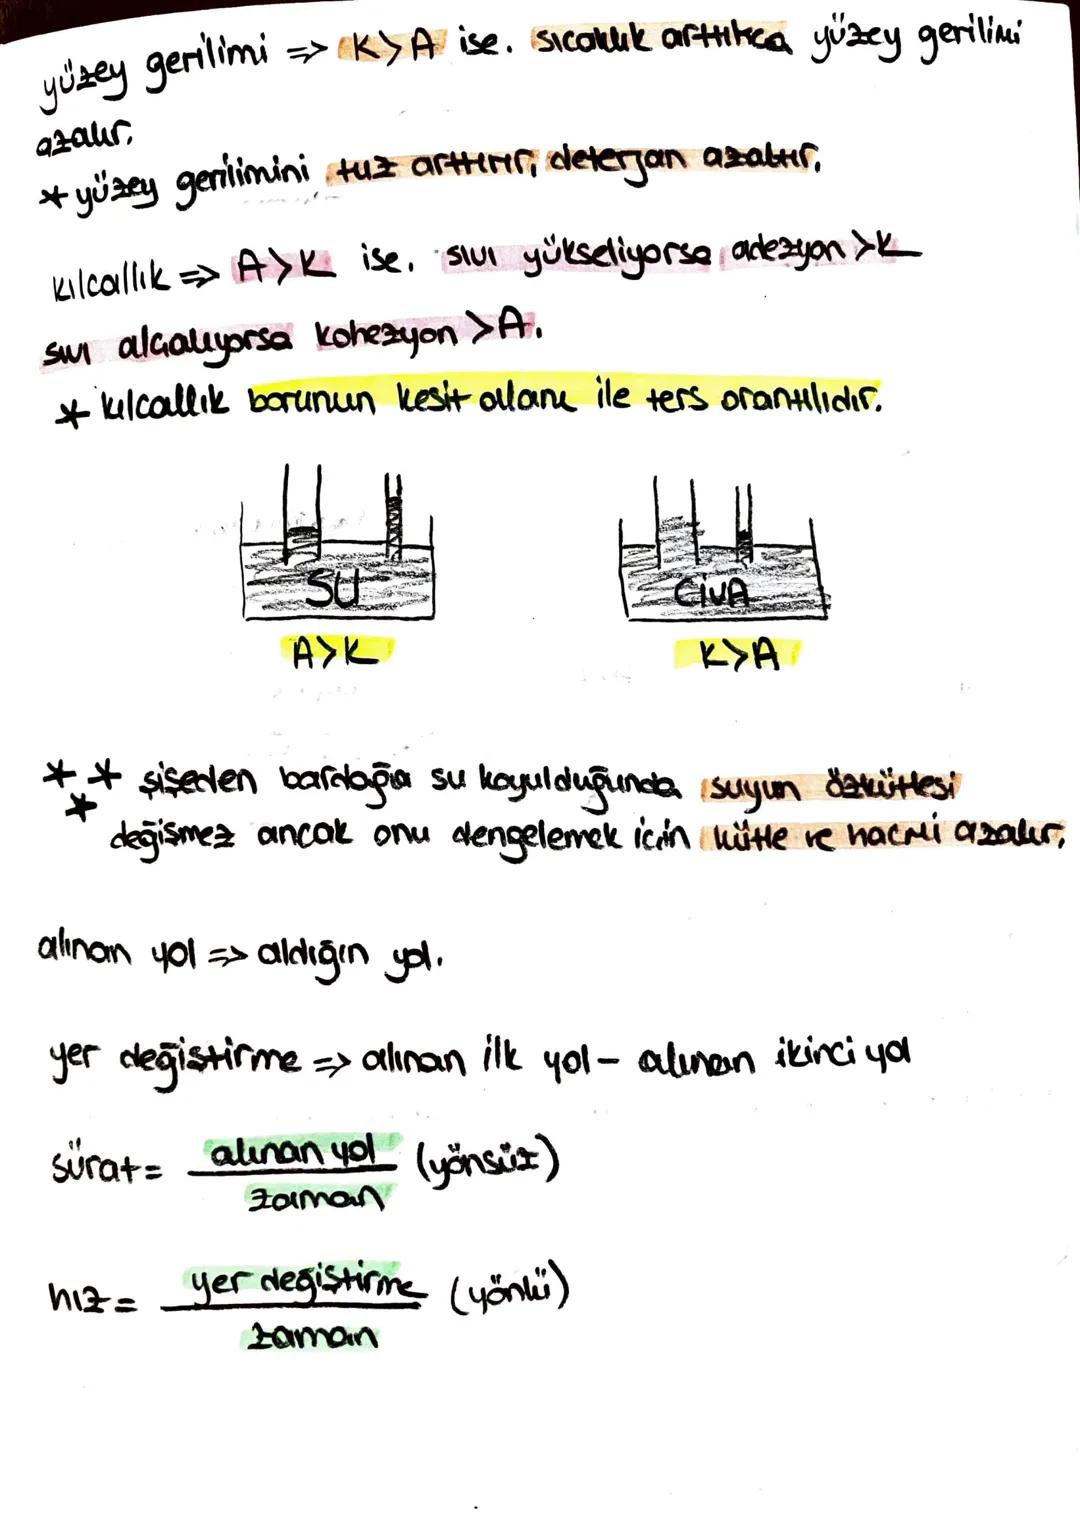 yüzey gerilimi => K>A ise. sıcaklık arttıkça yüzey gerilimi
azalır.
* yüzey gerilimini tuz arttırır, deterjan azaltır.
kılcallık => A>K ise. sıvı yükseliyorsa adezyon >K
sıvı alçalıyorsa kohezyon >A.
* kılcallık borunun kesit alanı ile ters orantılıdır.
SU CİVA
A>K K>A
*** şişeden bardağa su koyulduğunda suyun özkütlesi
değişmez ancak onu dengelemek için kütle ve hacmi azalır.
alınan yol => aldığın yol.
yer değiştirme => alınan ilk yol - alınan ikinci yol
sürat = alınan yol (yönsüz)
zaman
hız = yer değiştirme (yönlü)
zaman